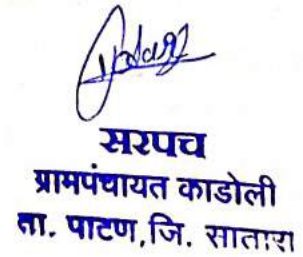 सरपच
ग्रामपंचायत काडोली
ता. पाटण,जि. सातारा